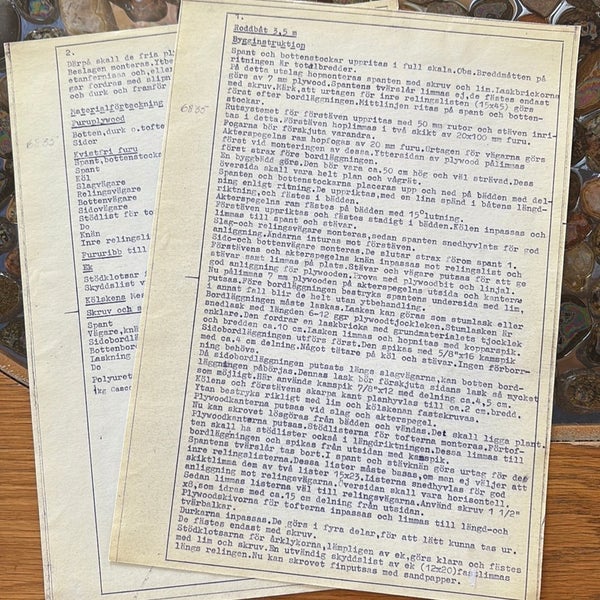 1.
Roddbåt 3,5 m
Bygginstruktion
Spant och bottenstockar uppritas i full skala.Obs.Breddmåtten på
ritningen är totalbredder.
På detta utelag hopmonteras spanten med skruv och lin.Laskbrickorna
görs av 7 mm plywood.Spantens tvärslår limmas ej,de fästes endast
med skruv.Märk,att urtagen för inre relingslisten (15x45) görs
först efter bordläggningen.Mittlinjen ritas på spant och botten-
stockar.
Rutsystemet för förstäven uppritas med 50 mm rutor och stäven inri-
tas i detta.Förstäven hoplimmas i två skikt av 20x100 mm furu.
Fogarna bör förskjuta varandra.
Akterspegelns ram hopfogas av 20 mm furu.Urtagen för vägarna görs
först vid monteringen av dessa.Yttersidan av plywood pålimmas
först strax före bordläggningen.
En byggbädd göres.Den bör vara ca.50 cm hög och väl strävad.Dess
översida skall vara helt plan och vågrät.
Spanten och bottenstockarna placeras upp och ned på bädden med del-
ning enligt ritning.De uppritas,med en lina spänd i båtens längd-
riktning,och fästes i bädden.
Akterspegelns ram fästes på bädden med 15°lutning.
Förstäven uppriktas och fästes stadigt i bädden.Kölen inpassas och
limmas till spant och stävar.
Slag-och relingsvägare monteras,sedan spanten snedhyvlats för god
anligning.Ändarna inturas mot förstäven.
Sido-och bottenvägare monteras.De slutar strax förom spant 1.
Förstävens och akterspegelns knän inpassas mot relingslist och
stävar samt limmas på plats.Stävar och vägare putsas för att ge
god anligning för plywooden.Prova med plywoodbit och linjal.
Nu pålimmas 7 mm plywooden på akterspegelns utsida och kanterna
putsas.Före bordläggningen bestryks spantens undersida med lim,
i annat fall blir de helt utan ytbehandling.
Bordläggningen måste laskas.Lasken kan göras som stumlask eller
snedlask med längden 6-12 ggr plywoodtjockleken.Stumlasken är
enklare.Den fordrar en laskbricka med grundmaterialets tjocklek
och bredden ca.10 cm.Lasken limmas och hopnitas med kopparspik.
Sidobordläggningen utförs först.Den spikas med 5/8"x16 kamspik
med ca.4 cm delning.Något tätare på köl och stävar.Ingen förborr-
ning behövs.
Då sidobordläggningen putsats längs slagvägarna,kan botten bord-
läggningen påbörjas.Dennas lask bör förskjuta sidans lask så mycket
som möjligt.Här användes kamspik 7/8"x12 med delning ca.4,5 cm.
Kölens och förstävens skarpa kant planhyvlas till ca.2 cm.bredd.
Ytan bestryks rikligt med lim och kölskenan fastskruvas.
Plywoodkanterna putsas vid slag och akterspegel.
Nu kan skrovet lösgöras från bädden och vändas.Det skall ligga plant.
Plywoodkanterna putsas.Stödlisterna för tofterna monteras.Förtof-
ten skall ha stödlister också i längdriktningen.Dessa limmas till
bordläggningen och spikas från utsidan med kamspik.
Spantens tvärslår tas bort.I spant och stävknän görs urtag för den
inre relingslisterna.Dessa lister måste basas,om man ej väljer att
skiktlimma dem av två lister 15x23.Listerna snedhyvlas för god
anligning mot relingsvägarna.Översidan skall vara horisontell.
Sedan limmas listerna väl till relingsvägarna.Använd skruv 1 1/2"
x8,som idras med ca.15 cm delning från utsidan.
Plywoodskivorna för tofterna inpassas och limmas till längd-och
tvärbalkar.
Durkorna inpassas.De görs i fyra delar,för att lätt kunna tas ur.
De fästes endast med skruv.
Stödklotsarna för årklykorna,lämpligen av ek,görs klara och fästes
med lim och skruv.En utvändig skyddslist av ek (12x20)fastlimmas
längs relingen.Nu kan skrovet finputsas med sandpapper.
6835
2.
Därpå skall de fria pl
Beslagen monteras.Ytbe
etanfernissa och,elle
gar fordras med slipn
och durk och framför
Materialförteckning
Furuplywood
Botten,durk o.tofte
Sidor
Kvistfri furu
Spant,bottenstocka
Spant
Köl
Slagvägare
Relingsvägare
Bottenvägare
Sidovägare
Stödlist för to
Do
Knän
Inre relingsli
Fururibb till
Ek
Stödklotsar i
Skyddslist vi
Kölskena Mes
Skruv och s
Spant
Vägare,knä
Sidobordlä
Bottenbor
Laskning
Do
Polyuret
1kg Casco
6835